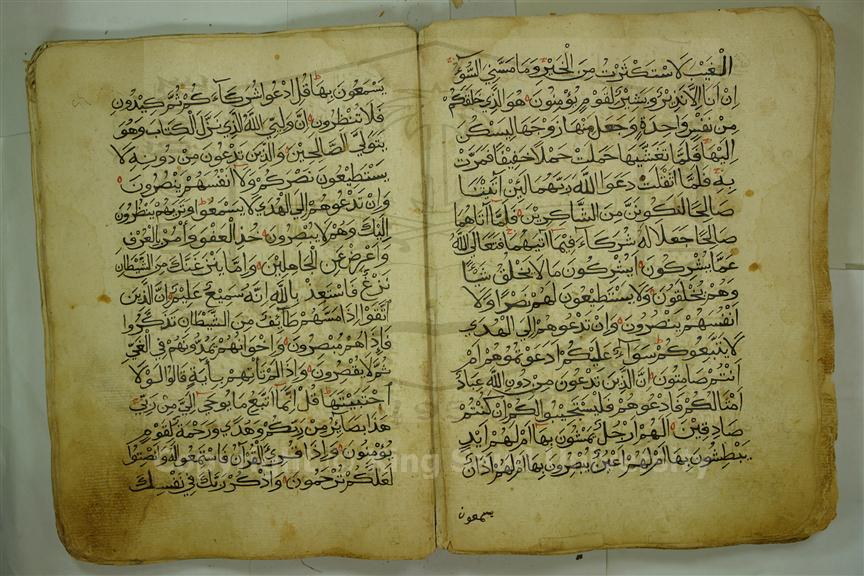 الغيب لاستكثرت من الخير وما مسني السوء
ان انا الا نذير وبشير لقوم يؤمنون هو الذي خلقكم
من نفس واحدة وجعل منها زوجها ليسكن
اليها فلما تغشيها حملت حملا خفيفا فمرت
به فلما اثقلت دعوا الله ربهما لئن آتيتنا
صالحا لنكونن من الشاكرين فلما آتاهما
صالحا جعلا له شركاء فيما آتيهما فتعالى الله
عما يشركون ايشركون ما لا يخلق شيئا
وهم يخلقون ولا يستطيعون لهم نصرا ولا
انفسهم ينصرون وان تدعوهم الى الهدي
لا يتبعوكم سواء عليكم ادعوتموهم ام
انتم صامتون ان الذين تدعون من دون الله عباد
امثالكم فادعوهم فليستجيبوا لكم ان كنتم
صادقين الهم ارجل يمشون بها ام لهم ايد
يبطشون بها ام لهم اعين يبصرون بها ام لهم اذان
يسمعون
يسمعون بها قل ادعوا شركاءكم ثم كيدون
فلا تنظرون ان وليي الله الذي نزل الكتاب وهو
يتولى الصالحين والذين تدعون من دونه لا
يستطيعون نصركم ولا انفسهم ينصرون
وان تدعوهم الى الهدي لا يسمعوا وتريهم ينظرون
اليك وهم لا يبصرون خذ العفو وأمر بالعرف
واعرض عن الجاهلين واما ينزغنك من الشيطان
نزغ فاستعذ بالله انه سميع عليم ان الذين
اتقوا اذا مسهم طائف من الشيطان تذكروا
فاذا هم مبصرون واخوانهم يمدونهم في الغي
ثم لا يقصرون واذا لم تأتهم بآية قالوا لولا
اجتبيتها قل انما اتبع ما يوحي الي من ربي
هذا بصائر من ربكم وهدي ورحمة لقوم
يؤمنون واذا قرئ القرآن فاستمعوا له وانصتوا
لعلكم ترحمون واذكر ربك في نفسك